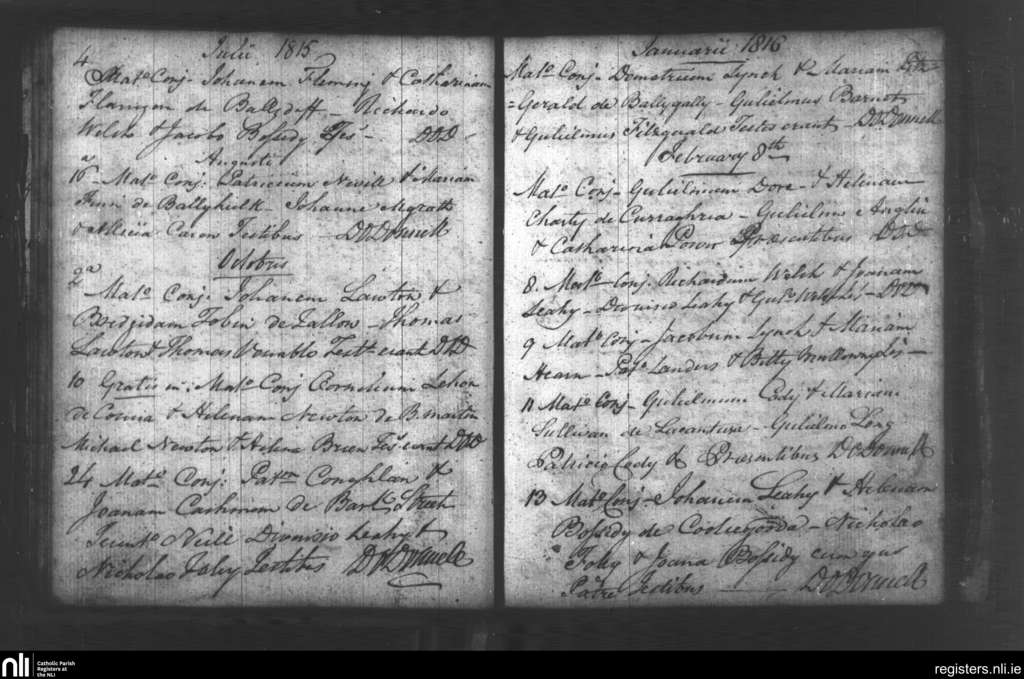 Julii 1815
4
Mato Conj. Johanem Fleming & Catharinam
de Ballyduff - Richardo
Welch & Jacobo Tes - DOD
Augusti
16 - Mato Conj: Patricium Nevill & Mariam
de - Johanne Mgrath
& Allicia Testibus - DODonnell
Octobris
9a
Mato Conj. Johanem Lawton &
Bridgidam Tobin de Tallow - Thomas
Lawton & Thomas Testes erant DOD
10 Gratis in: Mato Conj Cornelium
de & Helenam Newton de B. martin
Michael Newton & Helena Brien Tes. erant DOD
24 Mato Conj: Patm Coughlan &
Joanam de Bark Street
Neill Dionisio Leahy &
Nicholao Foley Testibus DODonnell
Januarii 1816
Mato Conj - Demetrium Lynch & Mariam Fitz
=Gerald de Ballygally - Gulielmus Barnet
& Gulielmus Fitzgerald Testes erant - DODonnell
February 8th
Mato Conj - Gulielmum Dore - & Helenam
Charty de Curraghria - Gulielmo Anglin
& Catharina Power Præsentibus DOD
8. Mato Conj. Richardum Welch & Joanam
Leahy - Dionisio Leahy & Gulo - DOD
9 Mato Conj - Jacobum Lynch & Mariam
Hearn - Pato Landers & Betty
11 Mato Conj - Gulielmum Cody & Mariam
Sullivan de - Gulielmo Long
Patricio Cody & Præsentibus DODonnell
13 Mato Conj - Johanem Leahy & Helenam
Bossidy de - Nicholao
Foley & Joana Bossidy
Patre Testibus - DODonnell
nli
Catholic Parish
Registers at
the NLI
registers.nli.ie